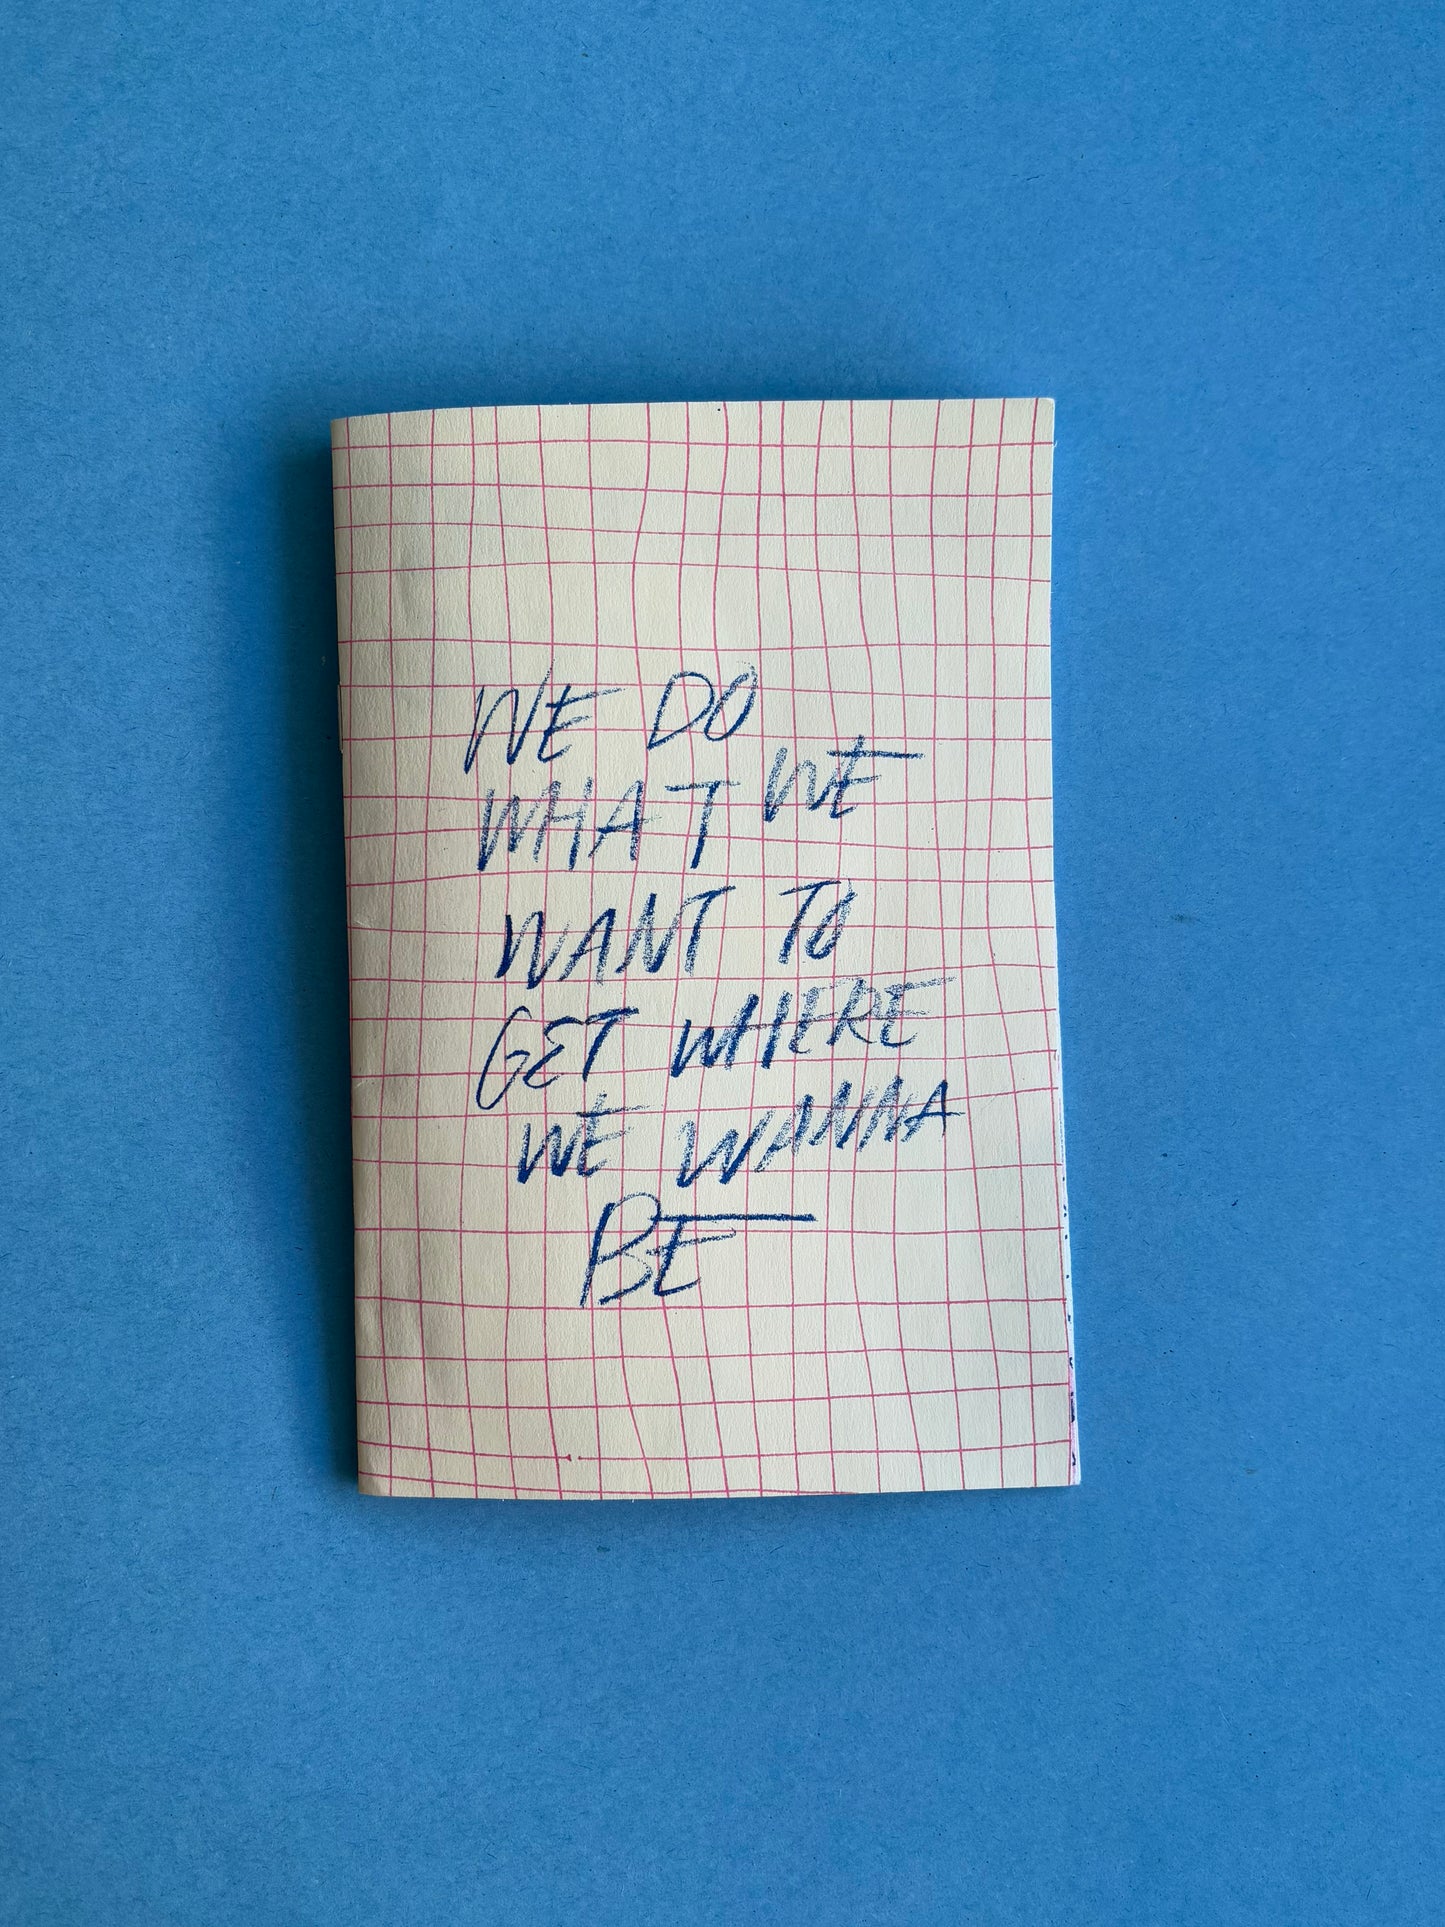 WE DO
WHAT WE
WANT TO
GET WHERE
WE WANNA
BE